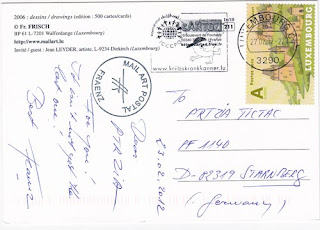 2006 : dessins / drawings (edition : 500 cartes/cards)
© Fr. FRISCH
BP 61 L-7201 Walferdange (Luxembourg)
www.mailart.lu
Invité / guest : Jean LEYDER, artiste, L-9234 Diekirch (Luxembourg)
MAIL ART POSTAL
FRAENZ
www.kriibskrankkanner.lu
LUXEMBOURG
3290
A
LUXEMBOURG
Dear
PTRZIA
For you !
last one !
Best
23.02.2012
To
PRTZIA TICTAC
PF 1140
D-82319 STARNBERG
(Germany)